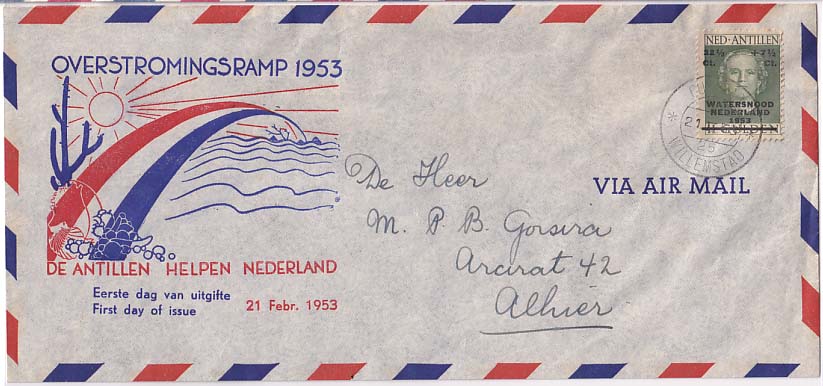 OVERSTROMINGSRAMP 1953
DE ANTILLEN HELPEN NEDERLAND
Eerste dag van uitgifte
First day of issue
21 Febr. 1953
NED·ANTILLEN
22½ +7½
Ct. Ct.
WATERSNOOD
NEDERLAND
1953
GULDEN
WILLEMSTAD
21
VIA AIR MAIL
De Heer
M. P. B. Gorsira
Ararat 42
Alhier